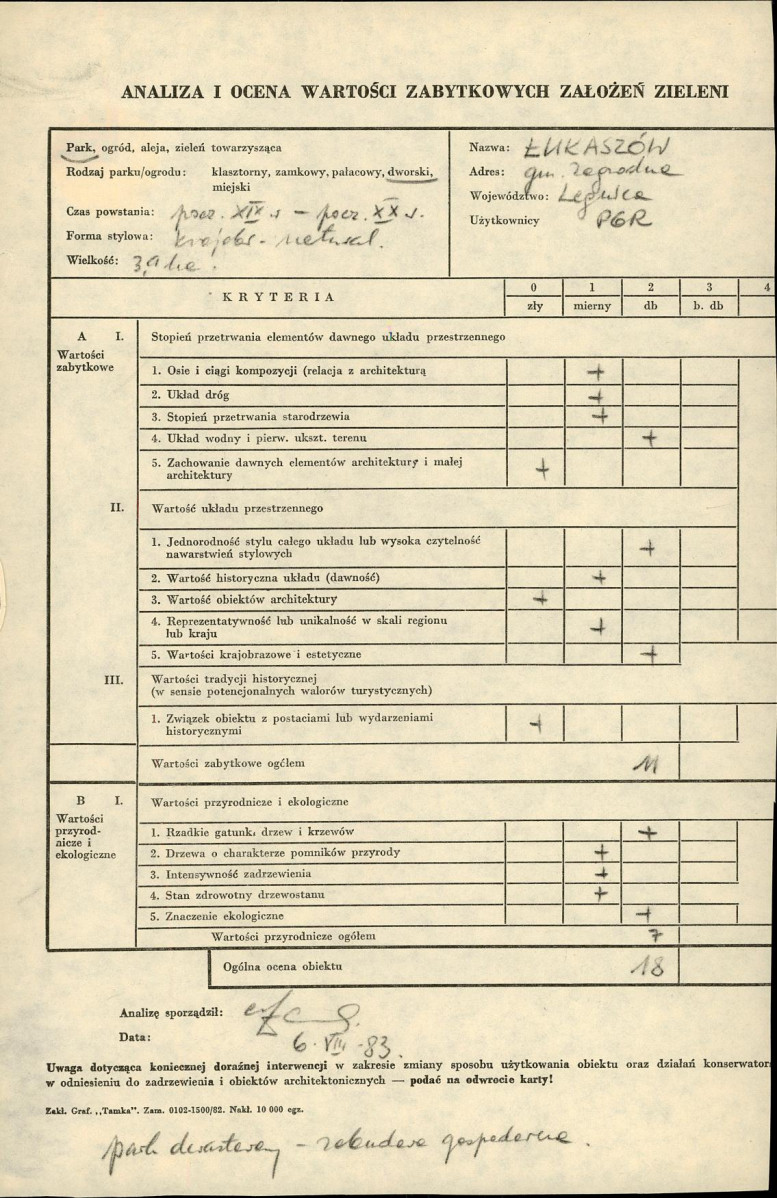 ANALIZA I OCENA WARTOŚCI ZABYTKOWYCH ZAŁOŻEŃ ZIELENI
Park, ogród, aleja, zieleń towarzysząca
Rodzaj parku/ogrodu: klasztorny, zamkowy, pałacowy, dworski,
miejski
Czas powstania: pocz. XIX w – pocz. XX w.
Forma stylowa: krajobr. - natural.
Wielkość: 3,9 ha.
Nazwa: ŁUKASZÓW
Adres: gm. Zagrodna
Województwo: Legnica
Użytkownicy PGR
KRYTERIA
0 1 2 3 4
zły mierny db b. db
A I. Stopień przetrwania elementów dawnego układu przestrzennego
Wartości
zabytkowe
1. Osie i ciągi kompozycji (relacja z architekturą +
2. Układ dróg +
3. Stopień przetrwania starodrzewia +
4. Układ wodny i pierw. ukszt. terenu +
5. Zachowanie dawnych elementów architektury i małej
architektury +
II. Wartość układu przestrzennego
1. Jednorodność stylu całego układu lub wysoka czytelność
nawarstwień stylowych +
2. Wartość historyczna układu (dawność) +
3. Wartość obiektów architektury +
4. Reprezentatywność lub unikalność w skali regionu
lub kraju +
5. Wartości krajobrazowe i estetyczne +
III. Wartości tradycji historycznej
(w sensie potencjonalnych walorów turystycznych)
1. Związek obiektu z postaciami lub wydarzeniami
historycznymi +
Wartości zabytkowe ogółem 11
B I. Wartości przyrodnicze i ekologiczne
Wartości
przyrod-
nicze i
ekologiczne
1. Rzadkie gatunki drzew i krzewów +
2. Drzewa o charakterze pomników przyrody +
3. Intensywność zadrzewienia +
4. Stan zdrowotny drzewostanu +
5. Znaczenie ekologiczne +
Wartości przyrodnicze ogółem 7
Ogólna ocena obiektu 18
Analizę sporządził:
Data: 6. VIII. 83.
Uwaga dotycząca koniecznej doraźnej interwencji w zakresie zmiany sposobu użytkowania obiektu oraz działań konserwator
w odniesieniu do zadrzewienia i obiektów architektonicznych — podać na odwrocie karty!
Zakł. Graf. „Tamka”. Zam. 0102-1500/82. Nakł. 10 000 egz.
park – zabudowa gospodarcza.